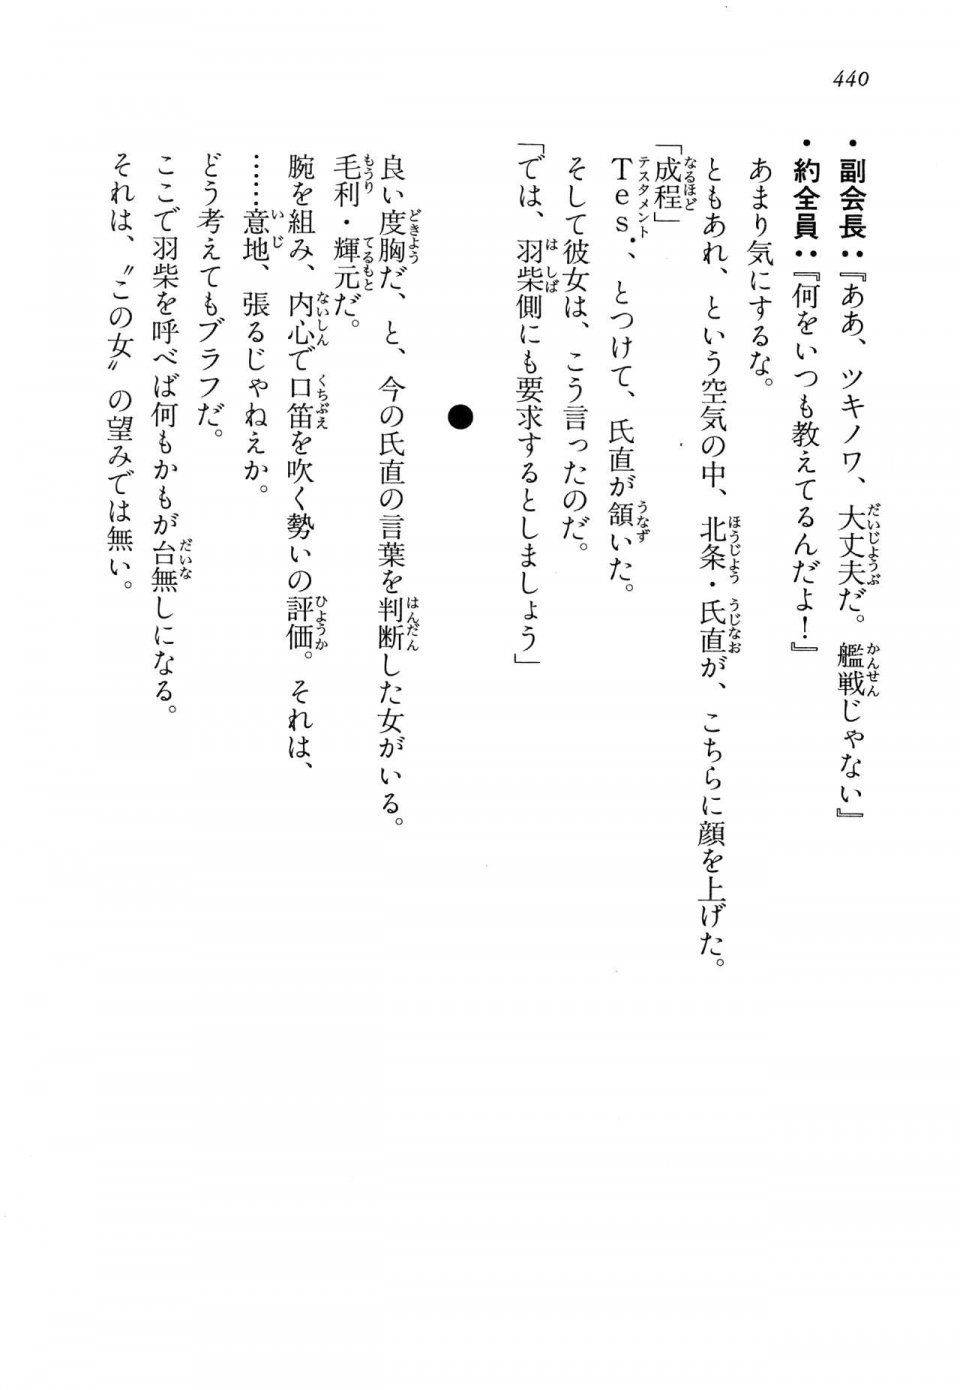 440
・副会長：『ああ、ツキノワ、大丈夫だ。艦戦じゃない』
・約全員：『何をいつも教えてるんだよ！』
あまり気にするな。
ともあれ、という空気の中、北条・氏直が、こちらに顔を上げた。
「成程」
Ｔｅｓ．、とつけて、氏直が頷いた。
そして彼女は、こう言ったのだ。
「では、羽柴側にも要求するとしましょう」
●
良い度胸だ、と、今の氏直の言葉を判断した女がいる。
毛利・輝元だ。
腕を組み、内心で口笛を吹く勢いの評価。それは、
……意地、張るじゃねえか。
どう考えてもブラフだ。
ここで羽柴を呼べば何もかもが台無しになる。
それは、〝この女〟の望みでは無い。